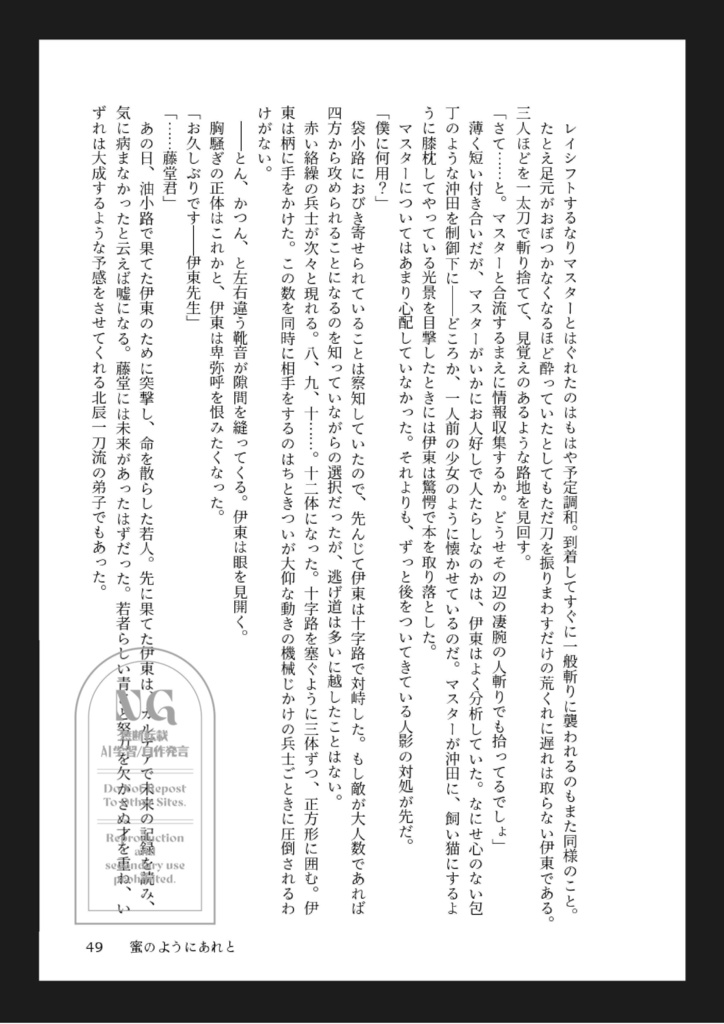 レイシフトするなりマスターとはぐれたのはもはや予定調和。到着してすぐに一般斬りに襲われるのもまた同様のこと。
たとえ足元がおぼつかなくなるほど酔っていたとしてもただ刀を振りまわすだけの荒くれに遅れは取らない伊東である。
三人ほどを一太刀で斬り捨てて、見覚えのあるような路地を見回す。
「さて……と。マスターと合流するまえに情報収集するか。どうせその辺の凄腕の人斬りでも拾ってるでしょ」
薄く短い付き合いだが、マスターがいかにお人好しで人たらしなのかは、伊東はよく分析していた。なにせ心のない包
丁のような沖田を制御下に――どころか、一人前の少女のように懐かせているのだ。マスターが沖田に、飼い猫にするよ
うに膝枕してやっている光景を目撃したときには伊東は驚愕で本を取り落とした。
マスターについてはあまり心配していなかった。それよりも、ずっと後をついてきている人影の対処が先だ。
「僕に何用？」
袋小路におびき寄せられていることは察知していたので、先んじて伊東は十字路で対峙した。もし敵が大人数であれば
四方から攻められることになるのを知っていながらの選択だったが、逃げ道は多いに越したことはない。
赤い絡繰の兵士が次々と現れる。八、九、十……。十二体になった。十字路を塞ぐように三体ずつ、正方形に囲む。伊
東は柄に手をかけた。この数を同時に相手をするのはちときついが大仰な動きの機械じかけの兵士ごときに圧倒されるわ
けがない。
――とん、かつん、と左右違う靴音が隙間を縫ってくる。伊東は眼を見開く。
胸騒ぎの正体はこれかと、伊東は卑弥呼を恨みたくなった。
「お久しぶりです――　伊東先生」
「……藤堂君」
あの日、油小路で果てた伊東のために突撃し、命を散らした若人。先に果てた伊東は、カルデアで未来の記録を読み、
気に病まなかったと云えば嘘になる。藤堂には未来があったはずだった。若者らしい青さと努力を欠かさぬ才を重ね、い
ずれは大成するような予感をさせてくれる北辰一刀流の弟子でもあった。
NG
無断転載
AI学習/自作発言
Do not Repost
To Other Sites.
Reproduction
and
secondary use
prohibited.
49　蜜のようにあれと